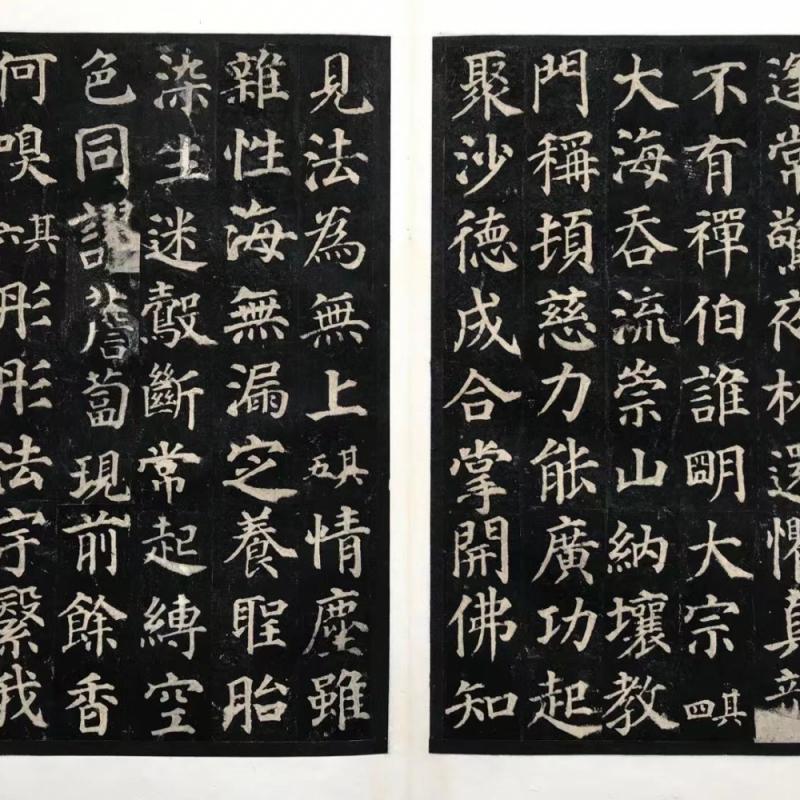 逢常驚夜還懼真龍
不有禪伯誰明大宗其四
大海吞流崇山納壤教
門稱頓慈力能廣功起
聚沙德成合掌開佛知
見法為無上其五情塵雖
雜性海無漏定養聖胎
染生迷鷇斷常起縛空
色同謬薝蔔現前餘香
何嗅其六彤彤法宇繄我